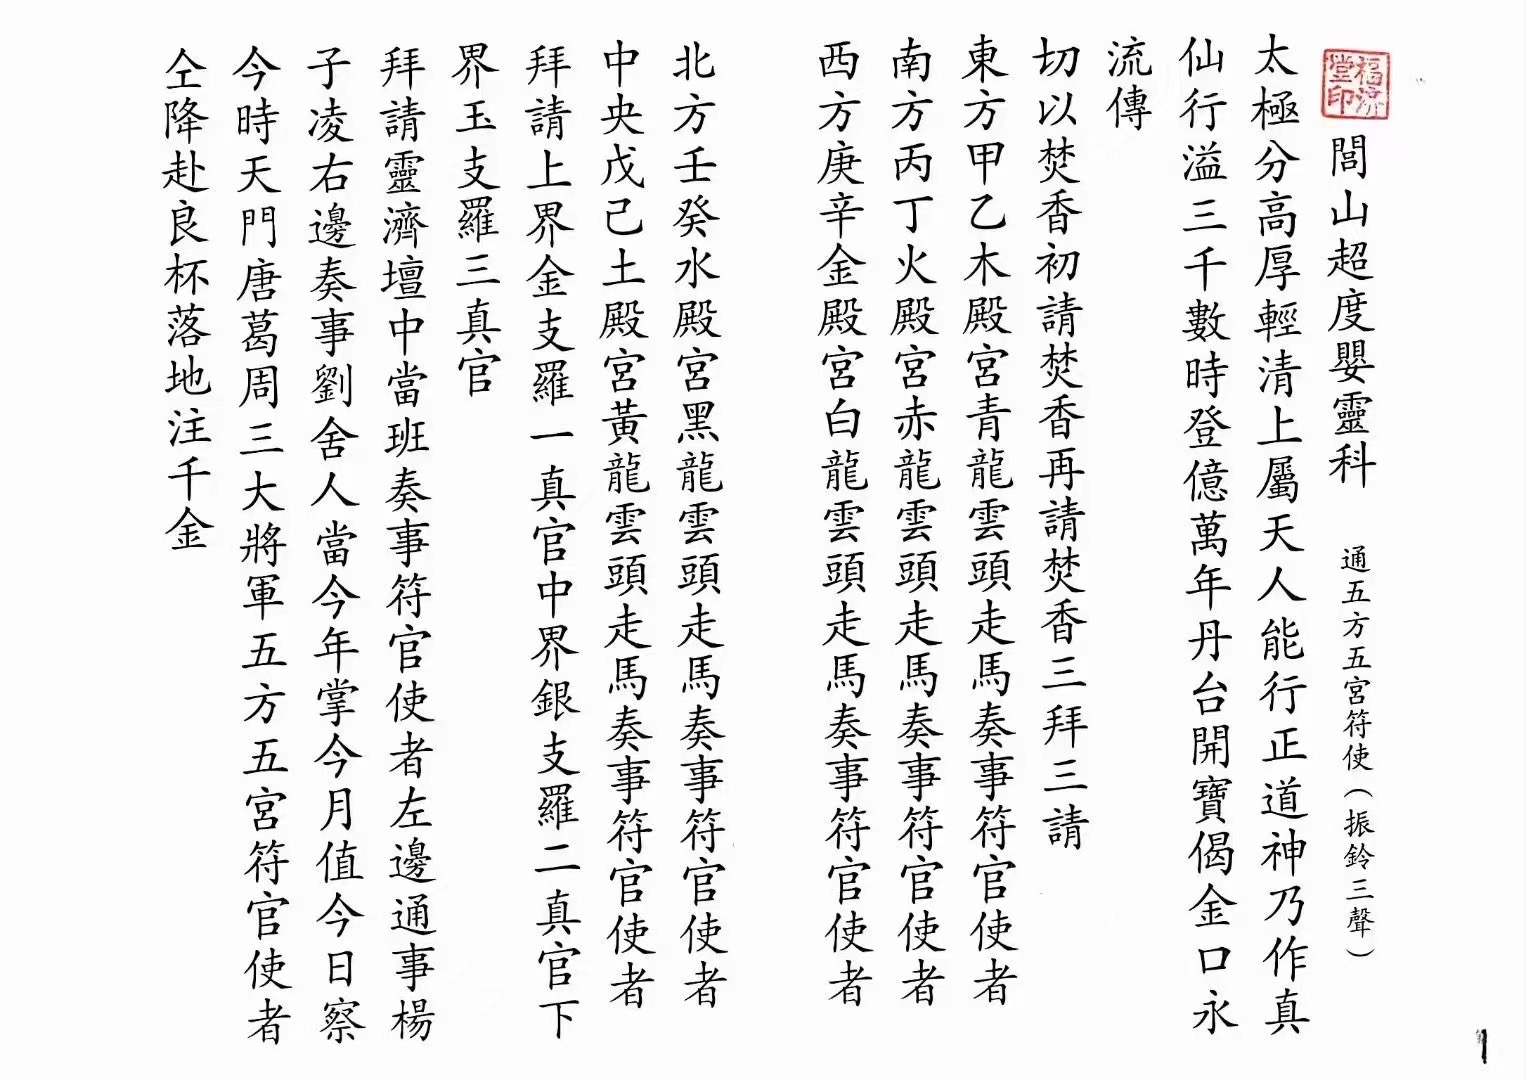 福源堂印
閭山超度嬰靈科 通五方五宮符使（振鈴三聲）
太極分高厚輕清上屬天人能行正道神乃作真
仙行溢三千數時登億萬年丹台開寶偈金口永
流傳
切以焚香初請焚香再請焚香三拜三請
東方甲乙木殿宮青龍雲頭走馬奏事符官使者
南方丙丁火殿宮赤龍雲頭走馬奏事符官使者
西方庚辛金殿宮白龍雲頭走馬奏事符官使者
北方壬癸水殿宮黑龍雲頭走馬奏事符官使者
中央戊己土殿宮黃龍雲頭走馬奏事符官使者
拜請上界金支羅一真官中界銀支羅二真官下
界玉支羅三真官
拜請靈濟壇中當班奏事符官使者左邊通事楊
子凌右邊奏事劉舍人當今年掌今月值今日察
今時天門唐葛周三大將軍五方五宮符官使者
仝降赴良杯落地注千金
1